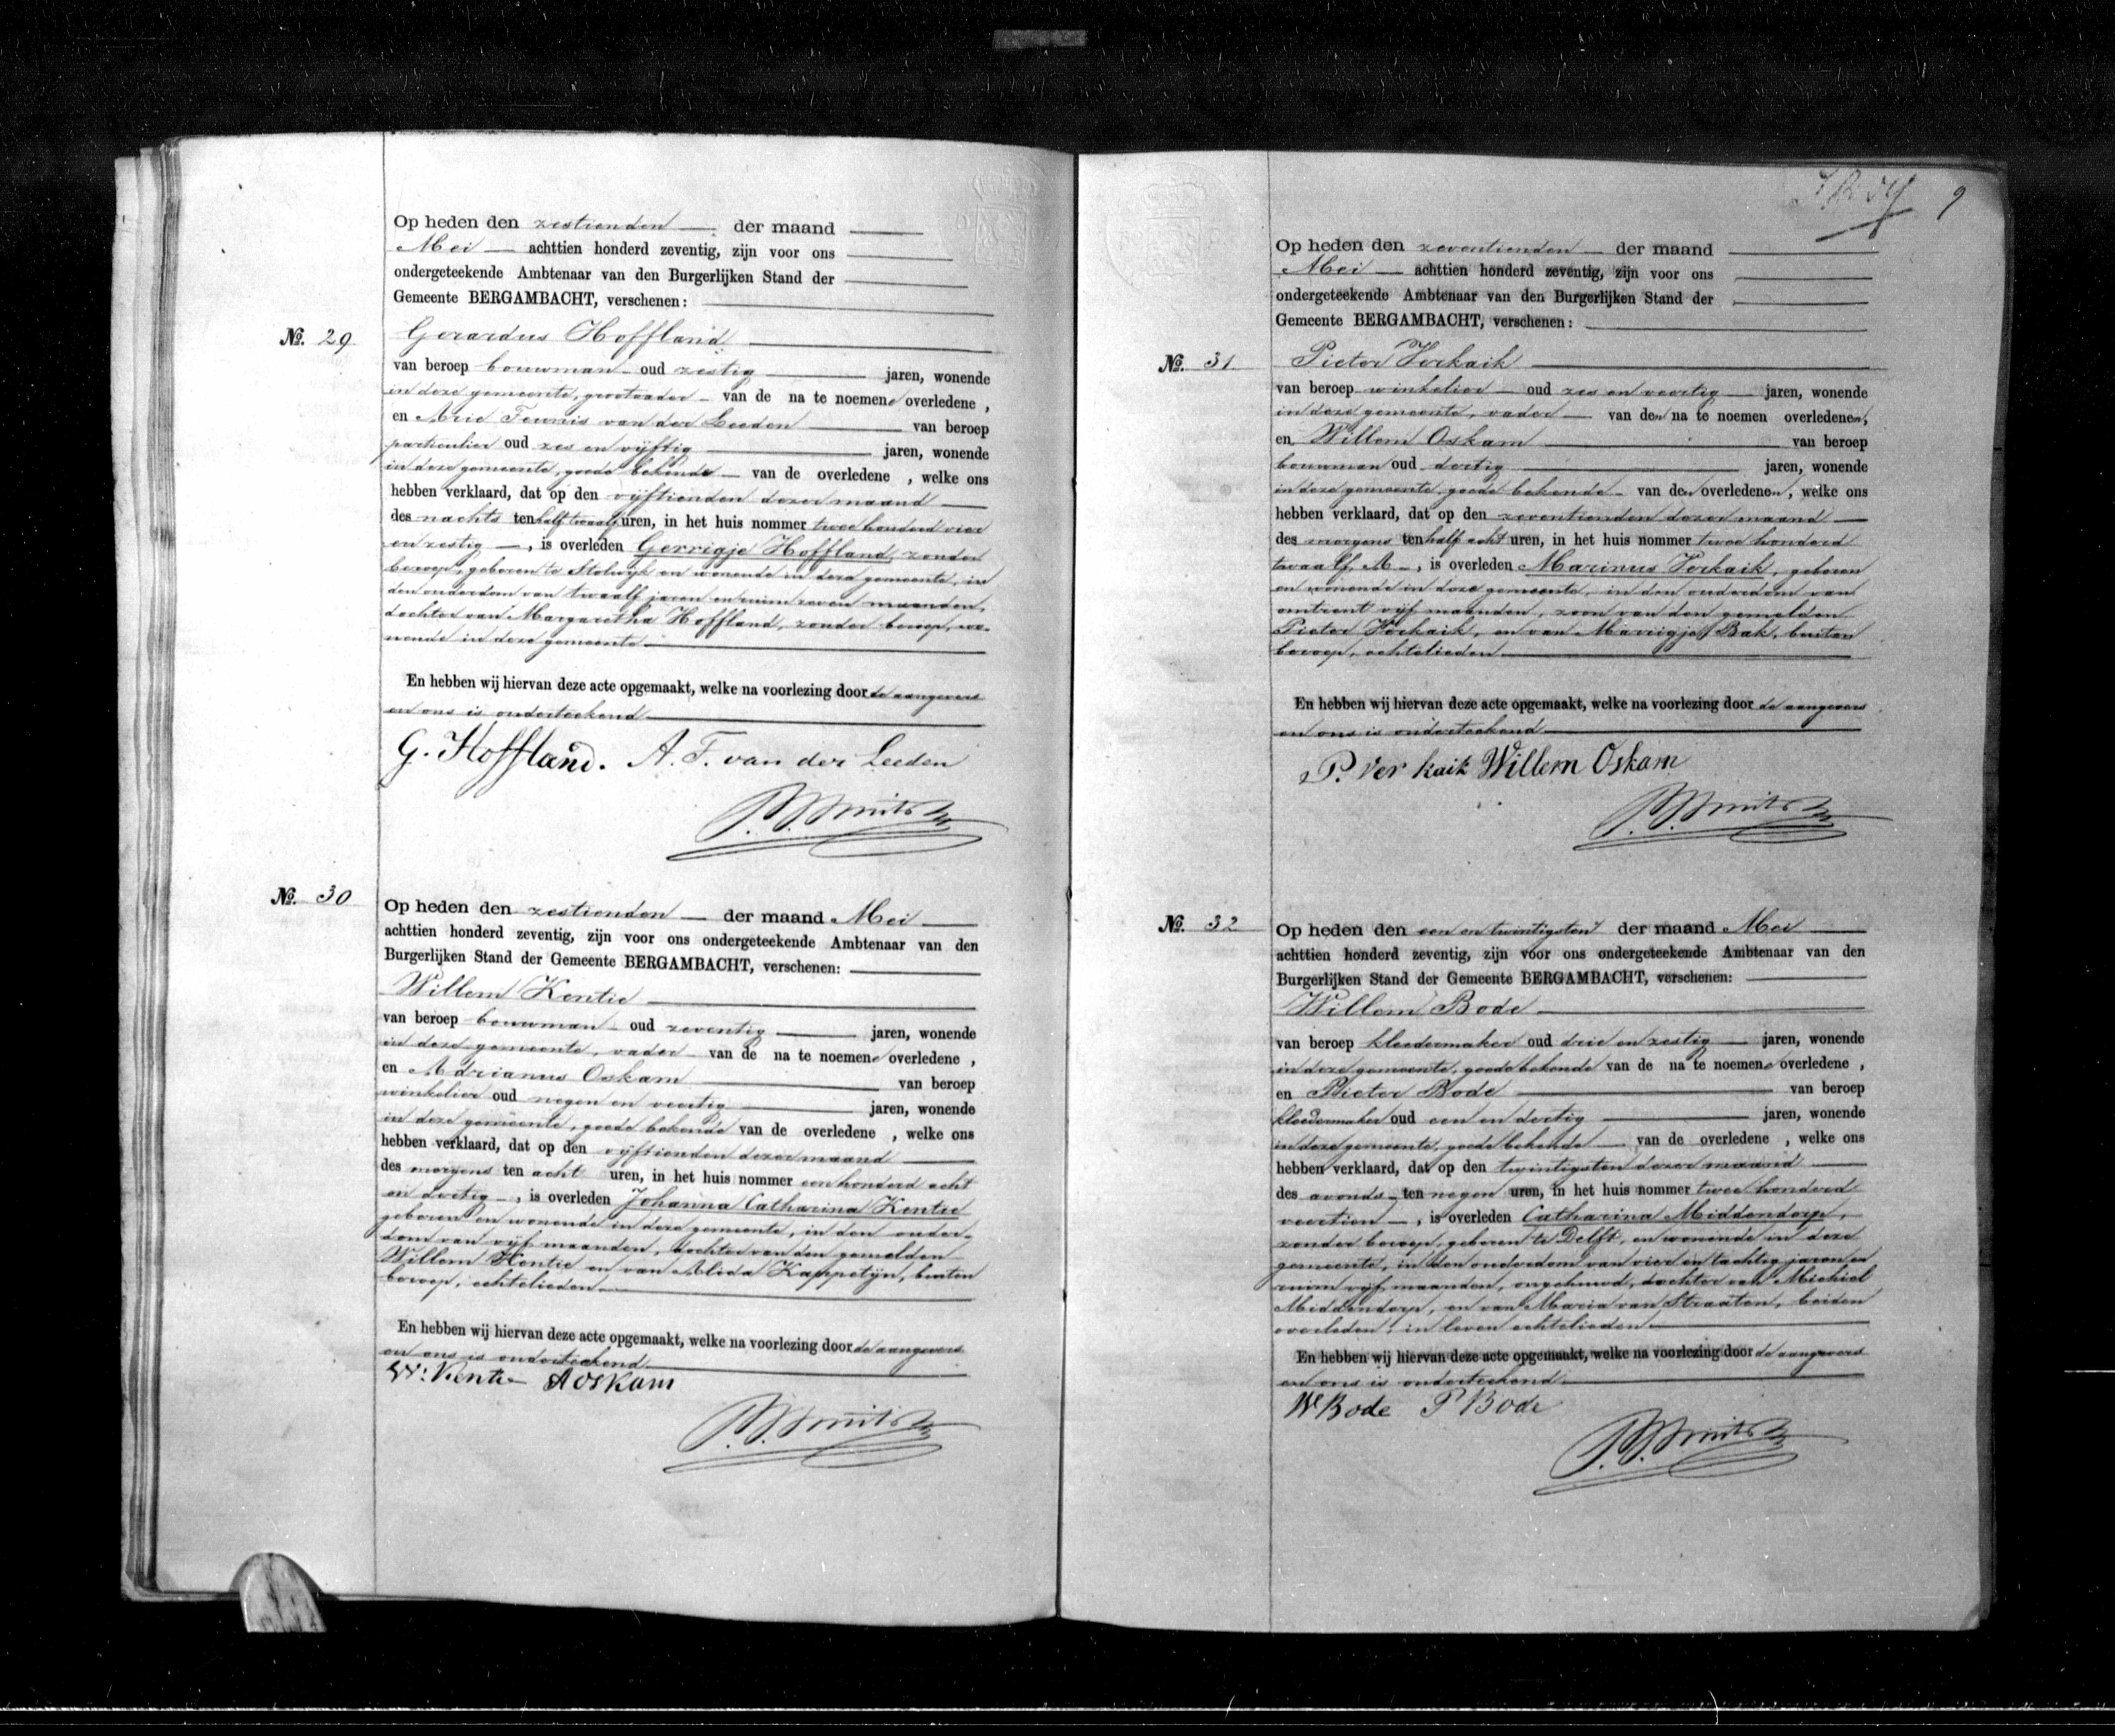 Op heden den zestienden der maand
Mei achttien honderd zeventig, zijn voor ons
ondergeteekende Ambtenaar van den Burgerlijken Stand der
Gemeente BERGAMBACHT, verschenen:
No. 29
Gerardus Hoffland
van beroep bouwman oud zestig jaren, wonende
in deze gemeente, grootvader van de na te noemene overledene,
en Arie Teunis van der Leeden van beroep
particulier oud zes en vijftig jaren, wonende
in deze gemeente, goede bekende van de overledene, welke ons
hebben verklaard, dat op den vijftienden dezer maand
des nachts ten half twaalf uren, in het huis nommer twee honderd vier
en zestig, is overleden Gerrigje Hoffland, zonder
beroep, geboren te Stolwijk en wonende in deze gemeente, in
den ouderdom van twaalf jaren en ruim zeven maanden,
dochter van Margaretha Hoffland, zonder beroep, wo-
nende in deze gemeente
En hebben wij hiervan deze acte opgemaakt, welke na voorlezing door de aangevers
en ons is onderteekend
G. Hoffland. A. T. van der Leeden
No. 30
Op heden den zestienden der maand Mei
achttien honderd zeventig, zijn voor ons ondergeteekende Ambtenaar van den
Burgerlijken Stand der Gemeente BERGAMBACHT, verschenen:
Willem Kentie
van beroep bouwman oud zeventig jaren, wonende
in deze gemeente, vader van de na te noemene overledene,
en Adrianus Oskam van beroep
winkelier oud negen en veertig jaren, wonende
in deze gemeente, goede bekende van de overledene, welke ons
hebben verklaard, dat op den vijftienden dezer maand
des morgens ten acht uren, in het huis nommer een honderd acht
en dertig, is overleden Johanna Catharina Kentie
geboren en wonende in deze gemeente, in den ouder-
dom van vijf maanden, dochter van den gemelden
Willem Kentie en van Alida Kappetijn, buiten
beroep, echtelieden
En hebben wij hiervan deze acte opgemaakt, welke na voorlezing door de aangevers
en ons is onderteekend
W: Kentie A Oskam
9
Op heden den zeventienden der maand
Mei achttien honderd zeventig, zijn voor ons
ondergeteekende Ambtenaar van den Burgerlijken Stand der
Gemeente BERGAMBACHT, verschenen:
No. 31
Pieter Verkaik
van beroep winkelier oud zes en veertig jaren, wonende
in deze gemeente, vader van den na te noemen overledenen,
en Willem Oskam van beroep
bouwman oud dertig jaren, wonende
in deze gemeente, goede bekende van den overledenen, welke ons
hebben verklaard, dat op den zeventienden dezer maand
des morgens ten half acht uren, in het huis nommer twee honderd
twaalf A, is overleden Marinus Verkaik, geboren
en wonende in deze gemeente, in den ouderdom van
omtrent vijf maanden, zoon van den gemelden
Pieter Verkaik, en van Marrigje Bak, buiten
beroep, echtelieden
En hebben wij hiervan deze acte opgemaakt, welke na voorlezing door de aangevers
en ons is onderteekend
P. Ver kaik Willem Oskam
No. 32
Op heden den een en twintigsten der maand Mei
achttien honderd zeventig, zijn voor ons ondergeteekende Ambtenaar van den
Burgerlijken Stand der Gemeente BERGAMBACHT, verschenen:
Willem Bode
van beroep kleedermaker oud drie en zestig jaren, wonende
in deze gemeente, goede bekende van de na te noemene overledene,
en Pieter Bode van beroep
kleedermaker oud een en dertig jaren, wonende
in deze gemeente, goede bekende van de overledene, welke ons
hebben verklaard, dat op den twintigsten dezer maand
des avonds ten negen uren, in het huis nommer twee honderd
veertien, is overleden Catharina Middendorp,
zonder beroep, geboren te Delft, en wonende in deze
gemeente, in den ouderdom van vier en tachtig jaren en
ruim vijf maanden, ongehuwd, dochter van Michiel
Middendorp, en van Maria van Straaten, beiden
overleden, in leven echtelieden
En hebben wij hiervan deze acte opgemaakt, welke na voorlezing door de aangevers
en ons is onderteekend
W Bode P Bode